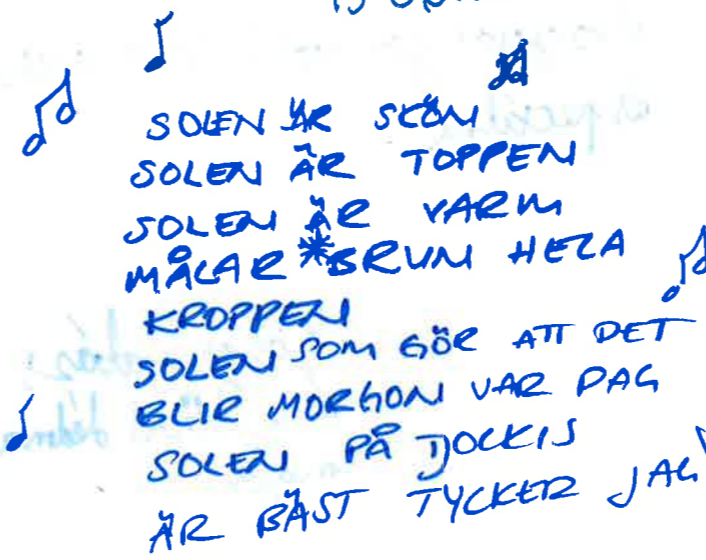 SOLEN ÄR SKÖN
SOLEN ÄR TOPPEN
SOLEN ÄR VARM
MÅLAR *BRUN HELA
KROPPEN
SOLEN SOM GÖR ATT DET
BLIR MORGON VAR DAG
SOLEN PÅ DJOCKIS
ÄR BÄST TYCKER JAG